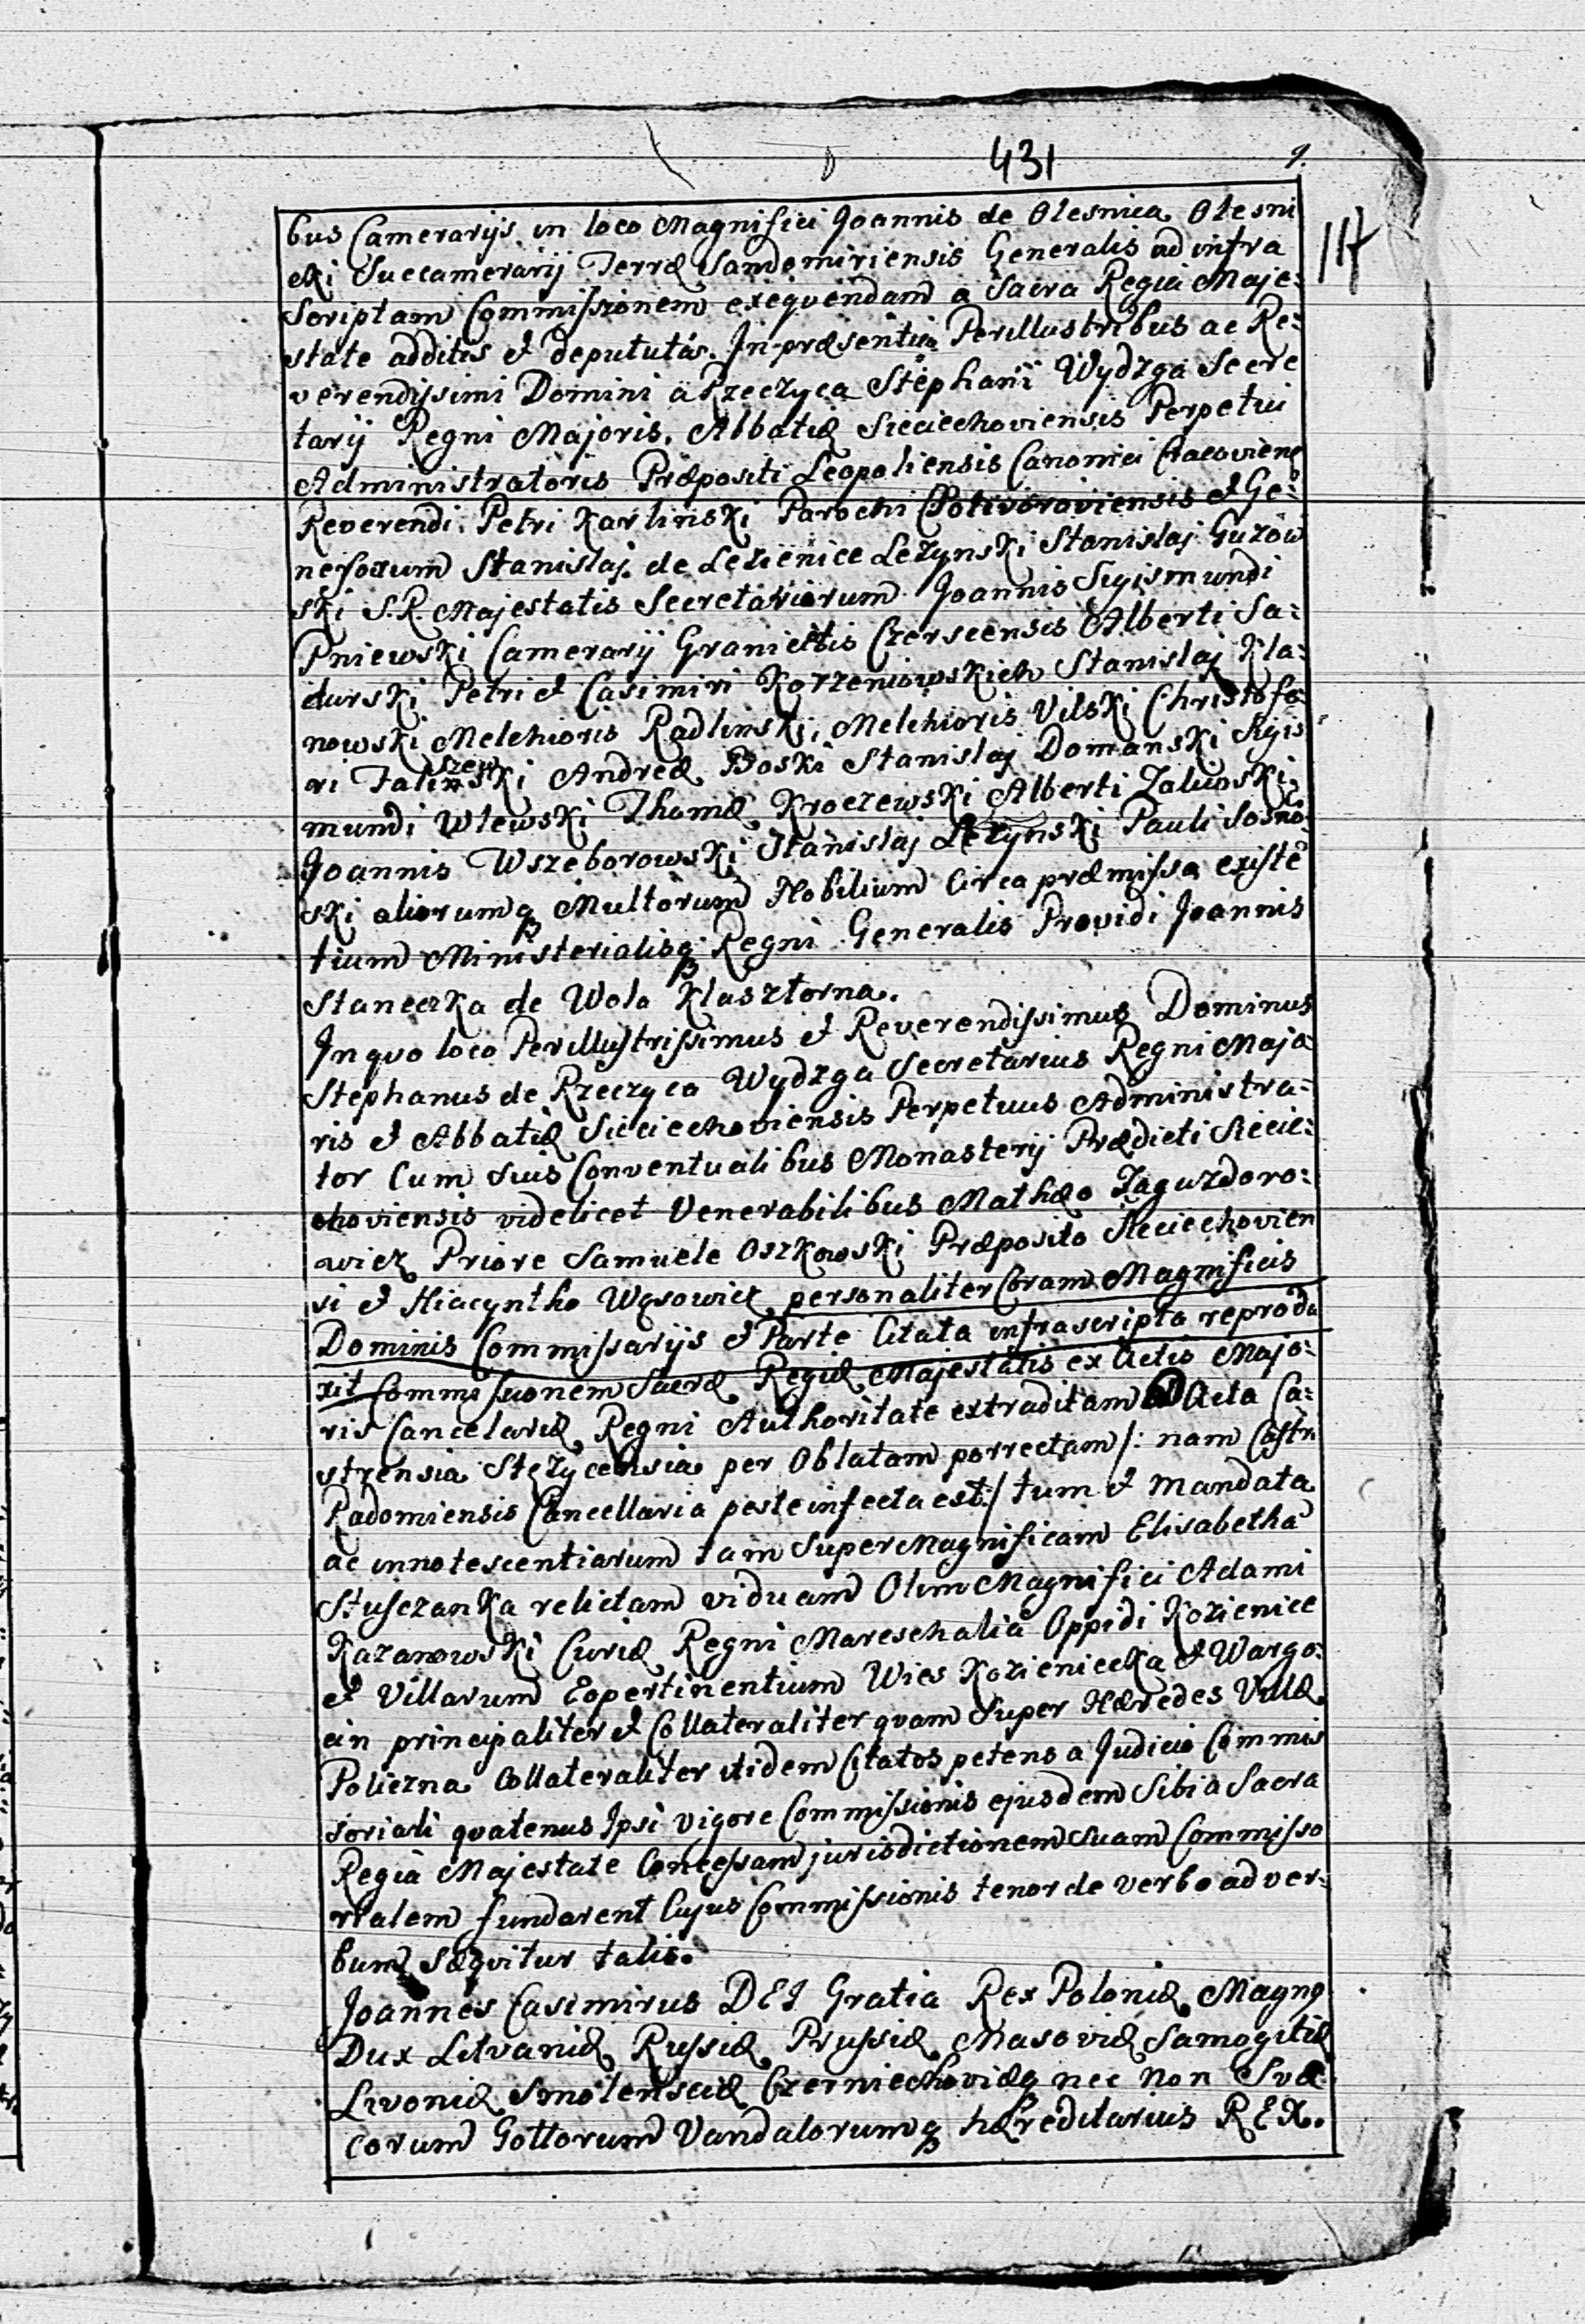 431 9.
117
bus Camerarijs in loco Magnifici Joannis de Olesnica Olesni
cki Succamerarij Terræ Sandomiriensis Generalis ad infra
scriptam Commissionem exequendam a Sacra Regia Maje:
state additis et deputatis. In præsentia Perillustribus ac Re:
verendissimi Domini a Rzeczyca Stephani Wydzga Secre
tarij Regni Majoris, Abbatiæ Sieciechoviensis Perpetui
Administratoris Præpositi Leopoliensis Canonici Cracoviens
Reverendi Petri Karlinski Parochi Potivoroviensis et Ge:
nerosorum Stanislaj de Lezienice Lezynski Stanislaj Guzow
ski S. R. Majestatis Secretariorum Joannis Sigismundi
Pniewski Camerarij Granicialis Czerscensis Alberti Sa:
durski Petri et Casimiri Korzeniowskich Stanislaj Kla:
nowski Melchioris Radlinski, Melchioris Vilski Christofo:
ri Falinski Andreæ Boski Stanislaj Domanski Sigis
mundi Wlewski Thomæ Kroczewski Alberti Zaluoski
Joannis Wszeborowski Stanislaj Lezynski Pauli Sosno:
ski aliorumq Multorum Nobilium circa præmissa existē
tium Ministerialisq Regni Generalis Providi Joannis
Staneczka de Wola Klasztorna.
In quo loco Perillustrissimus et Reverendissimus Dominus
Stephanus de Rzeczyca Wydzga Secretarius Regni Majo
ris et Abbatiæ Sieciechoviensis Perpetuus Administra:
tor Cum Suis Conventualibus Monasterij Prædicti Siecie:
choviensis videlicet Venerabilibus Mathæo Zaguzdoro:
wicz Priore Samuele Oszkowski Præposito Sieciechovien
si et Hiacyntho Wąsowicz personaliter Coram Magnificis
Dominis Commissarijs et Parte Citata infrascripta reprodu
xit Commissionem Sacræ Regiæ Majestatis ex Actis Majo:
ris Cancelariæ Regni Authoritate extraditam ad Acta Ca:
strensia Stęzycensia per Oblatam porrectam /: nam Castri
Radomiensis Cancellaria peste infecta est :/ tum et mandata
ac innotescentiarum tam Super Magnificam Elisabethā
Słusczanka relictam viduam Olim Magnifici Adami
Kazanowski Curiæ Regni Mareschalia Oppidi Kozienice
et Villarum Eopertinentium Wies Kozieniecka et Wargo:
cin principaliter et Collateraliter qvam Super Hæredes Villæ
Policzna Collateraliter itidem Citatos petens a Judicio Commis
soriali qvatenus Ipsi vigore Commissionis ejusdem Sibi a Sacra
Regia Majestate Concessam jurisdictionem Suam Commisso
rialem fundarent Cujus Commissionis tenor de verbo ad ver:
bum Sæqvitur talis.
Joannes Casimirus DEI Gratia Rex Poloniæ Magng
Dux Litvaniæ Russiæ Prussiæ Masoviæ Samogitiæ
Livoniæ Smolensciæ Czerniechoviæq nec non Svæ
corum Gottorum Vandalorumq hæreditarius REX.